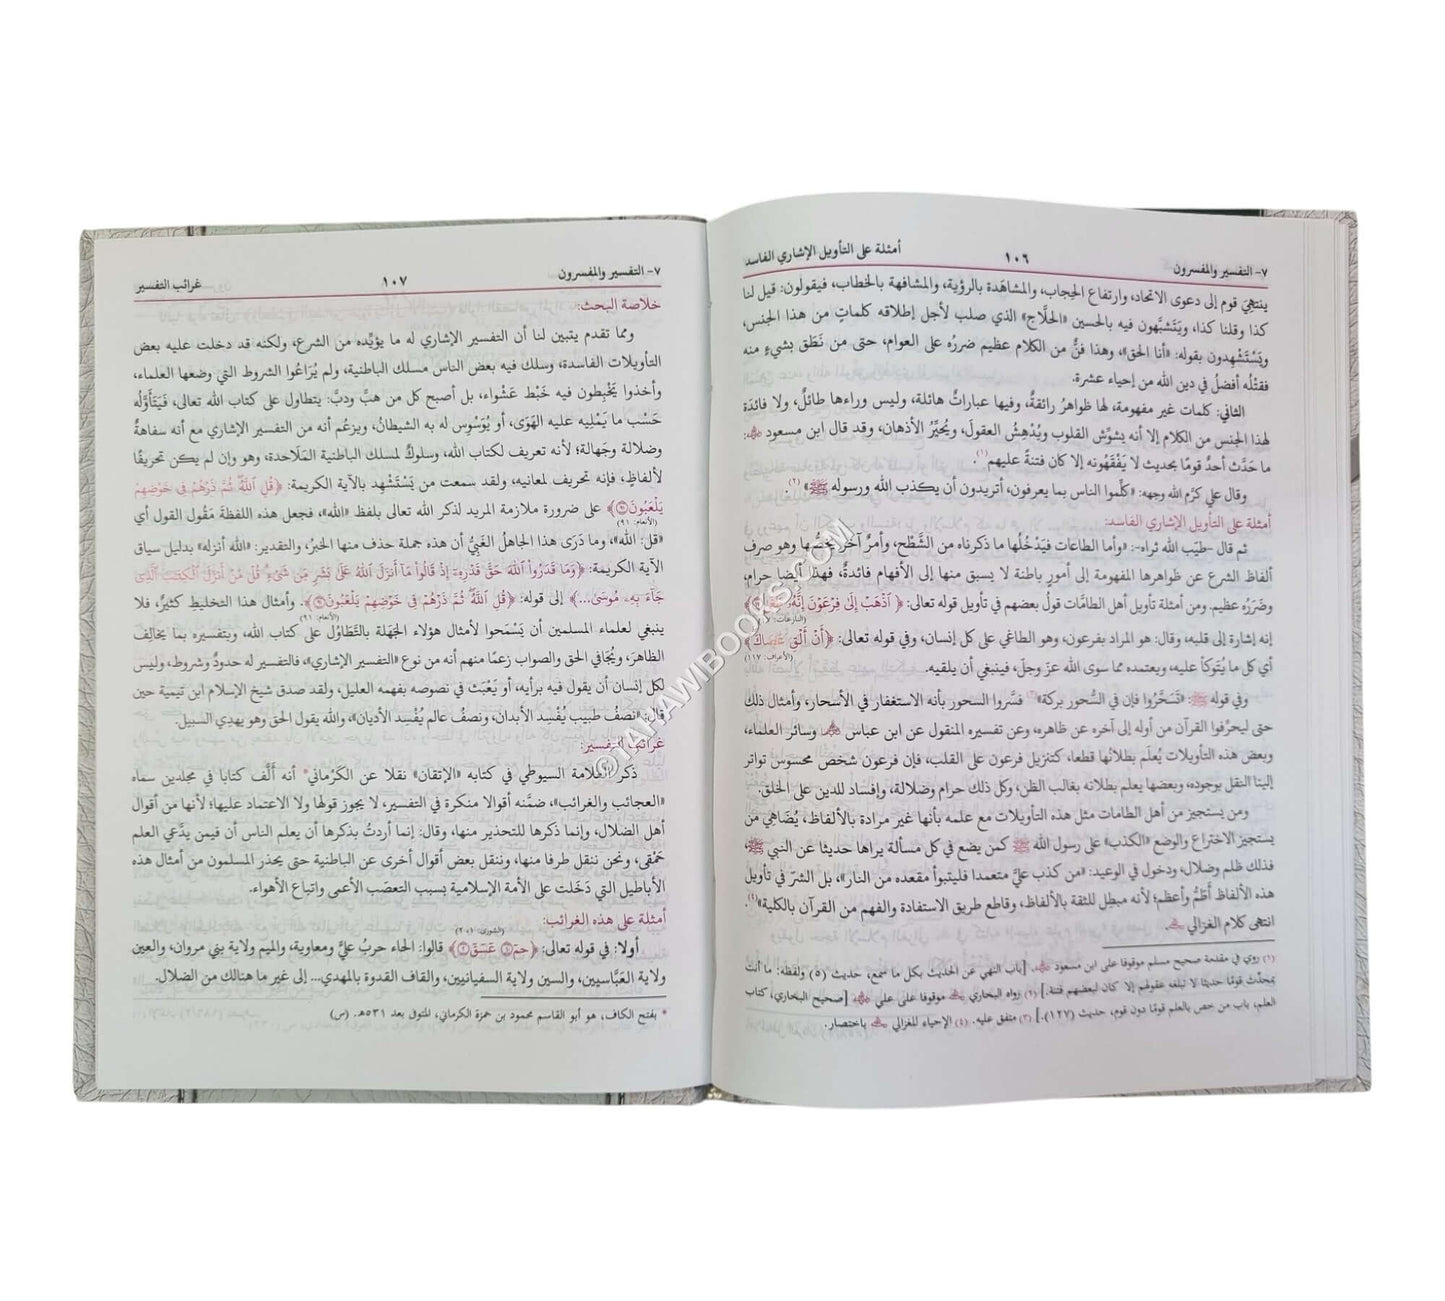 ٧- التفسير والمفسرون ١٠٦ أمثلة على التأويل الإشاري الفاسد
ينتهيَ قوم إلى دعوى الاتحاد، وارتفاع الحِجاب، والمشاهَدة بالرؤية، والمشافهة بالخطاب، فيقولون: قيل لنا
كذا وقلنا كذا، ويَتَشبَّهون فيه بالحسين «الحلّاج» الذي صلب لأجل إطلاقه كلماتٍ من هذا الجنس،
ويَسْتَشْهِدون بقوله: «أنا الحق»، وهذا فنٌّ من الكلام عظيم ضررُه على العوام، حتى من نَطَق بشيءٍ منه
فقتْلُه أفضلُ في دين الله من إحياء عشرة.
الثاني: كلمات غير مفهومة، لها ظواهرُ رائقةٌ، وفيها عباراتٌ هائلة، وليس وراءها طائلٌ، ولا فائدَة
لهذا الجنس من الكلام إلا أنه يشوِّش القلوب ويُدْهِشُ العقولَ، ويُحيِّرُ الأذهان، وقد قال ابن مسعود ؓ:
ما حَدَّث أحدٌ قومًا بحديث لا يَفْقَهُونه إلا كان فتنةً عليهم(١).
وقال علي كرَّم الله وجهه: «كلِّموا الناس بما يعرفون، أتريدون أن يكذب الله ورسوله ﷺ»(٢)
أمثلة على التأويل الإشاري الفاسد:
ثم قال -طيّب الله ثراه-: «وأما الطاعات فيَدْخُلُها ما ذكرناه من الشَّطْح، وأمرٌ آخرُ يخصُّها وهو صرف
ألفاظ الشرع عن ظواهرها المفهومة إلى أمورٍ باطنة لا يسبق منها إلى الأفهام فائدةٌ، فهذا أيضا حرام،
وضَرَرُه عظيم. ومن أمثلة تأويل أهل الطامّات قولُ بعضهم في تأويل قوله تعالى: ﴿ ٱذْهَبْ إِلَىٰ فِرْعَوْنَ إِنَّهُۥ
(النازعات:
إنه إشارة إلى قلبه، وقال: هو المراد بفرعون، وهو الطاغي على كل إنسان، وفي قوله تعالى: ﴿أَنْ أَلْقِ عَصَاكَ﴾
(الأعراف: ١١٧)
أي كل ما يُتَوكأ عليه، ويعتمده مما سوى الله عزّ وجلّ، فينبغي أن يلقيه.
وفي قوله ﷺ: «تَسَحَّرُوا فإن في السُّحور بركة»(٣) فسَّروا السحور بأنه الاستغفار في الأسحار، وأمثال ذلك
حتى ليحرّفوا القرآن من أوله إلى آخره عن ظاهره، وعن تفسيره المنقول عن ابن عباس ؓ وسائر العلماء،
وبعض هذه التأويلات يُعلَم بطلانها قطعا، كتنزيل فرعون على القلب، فإن فرعون شخصٌ محسوس تواتر
إلينا النقل بوجوده، وبعضها يعلم بطلانه بغالب الظن، وكل ذلك حرام وضلالة، وإفساد للدين على الخلق.
ومن يستجيز من أهل الطامات مثل هذه التأويلات مع علمه بأنها غير مرادة بالألفاظ، يُضَاهِي من
يستجيز الاختراع والوضع «الكذب» على رسول الله ﷺ كمن يضع في كل مسألة يراها حديثا عن النبي ﷺ،
فذلك ظلم وضلال، ودخول في الوعيد: «من كذب عليَّ متعمدا فليتبوأ مقعده من النار»، بل الشرّ في تأويل
هذه الألفاظ أَطَمُّ وأعظم؛ لأنه مبطِل للثقة بالألفاظ، وقاطع طريق الاستفادة والفهم من القرآن بالكلية»(٤).
انتهى كلام الغزالي
(١) روي في مقدمة صحيح مسلم موقوفا على ابن مسعود ؓ. [باب النهي عن الحديث بكل ما سمع، حديث (٥) ولفظه: ما أنت
بمحدِّث قومًا حديثا لا تبلغه عقولهم إلا كان لبعضهم فتنة.] (٢) رواه البخاري موقوفا على علي ؓ [صحيح البخاري، كتاب
العلم، باب من خص بالعلم قومًا دون قوم، حديث (١٢٧).] (٣) متفق عليه. (٤) الإحياء للغزالي باختصار.
٧- التفسير والمفسرون ١٠٧ غرائب التفسير
خلاصة البحث:
ومما تقدم يتبين لنا أن التفسير الإشاري له ما يؤيِّده من الشرع، ولكنه قد دخلت عليه بعض
التأويلات الفاسدة، وسلك فيه بعض الناس مسلك الباطنية، ولم يُرَاعُوا الشروط التي وضعها العلماء،
وأخذوا يَخْبِطون فيه خَبْط عَشْواء، بل أصبح كل من هبَّ ودبَّ: يتطاول على كتاب الله تعالى، فيَتَأَوَّلُه
حَسْب ما يَمْلِيه عليه الهَوَى، أو يُوَسْوِس له به الشيطانُ، ويزعُم أنه من التفسير الإشاري مع أنه سفاهةٌ
وضلالة وجَهالة؛ لأنه تعريف لكتاب الله، وسلوكٌ لمسلك الباطنية المَلَاحدة، وهو وإن لم يكن تحريفًا
لألفاظٍ، فإنه تحريف لمعانيه، ولقد سمعت من يَسْتَشْهِد بالآية الكريمة: ﴿قُلِ ٱللَّهُۖ ثُمَّ ذَرْهُمْ فِى خَوْضِهِمْ
يَلْعَبُونَ۝٩١﴾ على ضرورة ملازمة المريد لذكر الله تعالى بلفظ «الله»، فجعل هذه اللفظةَ مَقُول القول أي
(الأنعام: ٩١)
«قل: الله»، وما دَرَى هذا الجاهلُ الغَبِيُّ أن هذه جملة حذف منها الخبرُ، والتقدير: «الله أنزله» بدليل سياق
الآية الكريمة: ﴿وَمَا قَدَرُوا۟ ٱللَّهَ حَقَّ قَدْرِهِۦٓ إِذْ قَالُوا۟ مَآ أَنزَلَ ٱللَّهُ عَلَىٰ بَشَرٍ مِّن شَىْءٍۗ قُلْ مَنْ أَنزَلَ ٱلْكِتَٰبَ ٱلَّذِى
جَآءَ بِهِۦ مُوسَىٰ...﴾ إلى قوله: ﴿قُلِ ٱللَّهُۖ ثُمَّ ذَرْهُمْ فِى خَوْضِهِمْ يَلْعَبُونَ۝٩١﴾. وأمثال هذا التخليطِ كثيرٌ، فلا
(الأنعام: ٩١)
ينبغي لعلماء المسلمين أن يَسْمَحوا لأمثال هؤلاء الجَهَلة بالتَّطاوُل على كتاب الله، وبتفسيره بما يخالِف
الظاهرَ، ويُجَافي الحق والصواب زعمًا منهم أنه من نوع «التفسير الإشاري»، فالتفسير له حدودٌ وشروط، وليس
لكل إنسان أن يقول فيه برأيه، أو يَعْبَث في نصوصه بفهمه العليل، ولقد صدق شيخ الإسلام ابن تيمية حين
قال: «نصفُ طبيب يُفْسِد الأبدان، ونصفُ عالم يُفْسِد الأديان»، والله يقول الحق وهو يهدِي السبيل.
غرائب التفسير:
ذكر العلامة السيوطي في كتابه «الإتقان» نقلا عن الكَرماني* أنه ألَّف كتابا في مجلدين سماه
«العجائب والغرائب»، ضمَّنه أقوالا منكرة في التفسير، لا يجوز قولها ولا الاعتماد عليها؛ لأنها من أقوال
أهل الضلال، وإنما ذكرها للتحذير منها، وقال: إنما أردتُ بذكرها أن يعلم الناس أن فيمن يدَّعي العلم
حَمْقى، ونحن ننقل طرفا منها، وننقل بعض أقوال أخرى عن الباطنية حتى يحذر المسلمون من أمثال هذه
الأباطيل التي دَخَلت على الأمة الإسلامية بسبب التعصّب الأعمى واتباع الأهواء.
أمثلة على هذه الغرائب:
أولا: في قوله تعالى: ﴿حمٓ۝١ عٓسٓقٓ۝٢﴾ قالوا: الحاء حربُ عليٍّ ومعاوية، والميم ولاية بني مروان، والعين
(الشورى: ١-٢)
ولاية العَبَّاسيين، والسين ولاية السفيانيين، والقاف القدوة بالمهدي... إلى غير ما هنالك من الضلال.
* بفتح الكاف، هو أبو القاسم محمود بن حمزة الكرماني، المتوفى بعد ٥٣١هـ. (ص)
©TAHAWIBOOKS.COM